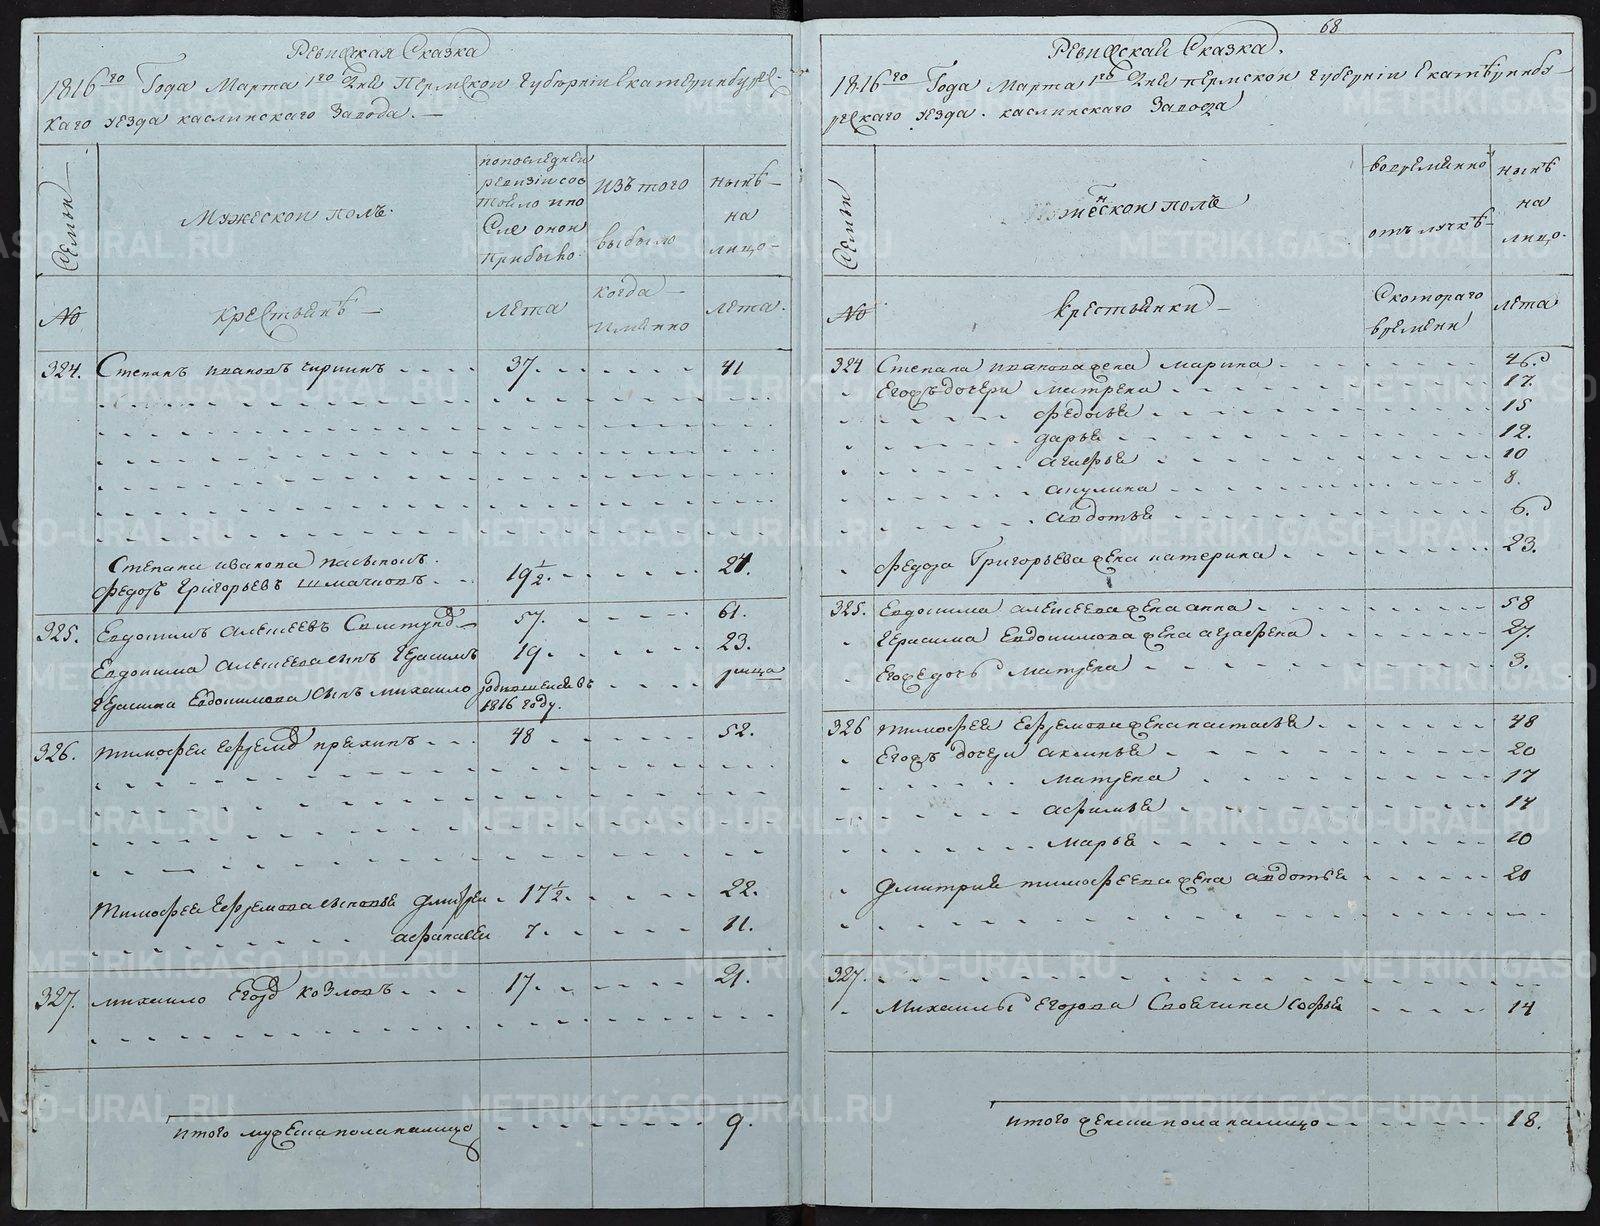 Ревизская Сказка
1816го Года Марта 1го Дня Пермской Губернiи Екатеринбургс-
каго уезда каслинскаго Завода. —
Семьи
Мужескои полъ.
попоследнеи
ревизiи сос
тояло ипо
сле онои
прибыло
изъ того
выбыло
ныне
на
лицо
№
крестьянъ —
лета
когда
имянно
лета.
324. Степанъ ивановъ 37. 41
Степана иванова пасынокъ.
федоръ григорьевъ 19½. 21.
325. Евдокимъ алексеевъ 57. 61.
Евдокима алексеева сынъ герасимъ 19. 23.
герасима Евдокимова сынъ михаило 1816 году.
326. тимофеи ефремов 48 52.
тимофея ефремова сыновья дмитреи 17½. 22.
афанасеи 7. 11.
327. михаило Егоров козловъ 17. 21.
итого мужеска пола налицо 9.
68
Ревизская Сказка.
1816го Года Марта 1го Дня пермской губернiи Екатеринбу-
ргскаго уезда. каслинскаго Завода
Семьи
Женскои полъ
вовременно
отълучке
ныне
на
лицо.
№
крестьянки —
Скотораго
времени
лета
324 Степана иванова жена марина 46.
Егожъ дочери матрена 17.
федосья 15
дарья 12.
агафья 10
акулина 8.
авдотья 6.
федора Григорьева жена катерина 23.
325. Евдокима алексеева жена анна 58
герасима Евдокимова жена аграфена 27.
Егожедочь матрена 3.
326 тимофея ефремова жена настасья 48
Егожъ дочери акилина 20
матрена 17
афимья 14
марья 10
дмитрия тимофеева жена авдотья 20
327.
Михаилы Егорова Своячина софья 14
итого женска пола налицо 18.
METRIKI.GASO-URAL.RU